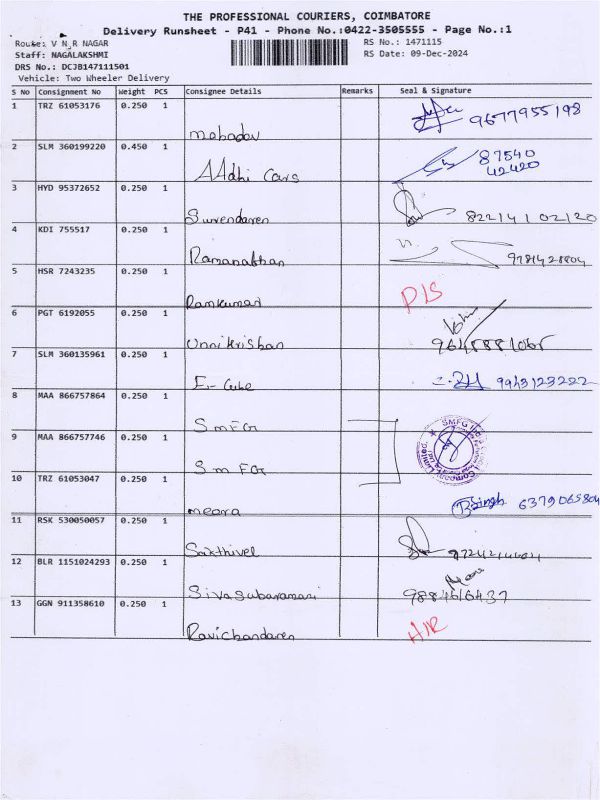 THE PROFESSIONAL COURIERS, COIMBATORE
Delivery Runsheet - P41 - Phone No.:0422-3505555 - Page No.:1
Route: V N R NAGAR RS No.: 1471115
Staff: NAGALAKSHMI RS Date: 09-Dec-2024
DRS No.: DCJB147111501
Vehicle: Two Wheeler Delivery
S No Consignment No Weight PCS Consignee Details Remarks Seal & Signature
1 TRZ 61053176 0.250 1 mahadev 9677955198
2 SLM 360199220 0.450 1 AAdhi Cars 87540
42420
3 HYD 95372652 0.250 1 Surendaren 822141 02120
4 KDI 755517 0.250 1 Ramanathan
5 HSR 7243235 0.250 1 Ramkumar D/S
6 PGT 6192055 0.250 1 Unnikrishan
7 SLM 360135961 0.250 1 E-Cube 9943123222
8 MAA 866757864 0.250 1 SMFG
9 MAA 866757746 0.250 1 SmFG
SMFG
10 TRZ 61053047 0.250 1 meera Singh 6379065804
11 RSK 530050057 0.250 1 Sakthivel
12 BLR 1151024293 0.250 1 Sivasubaramani 9884616437
13 GGN 911358610 0.250 1 Ravichandaren